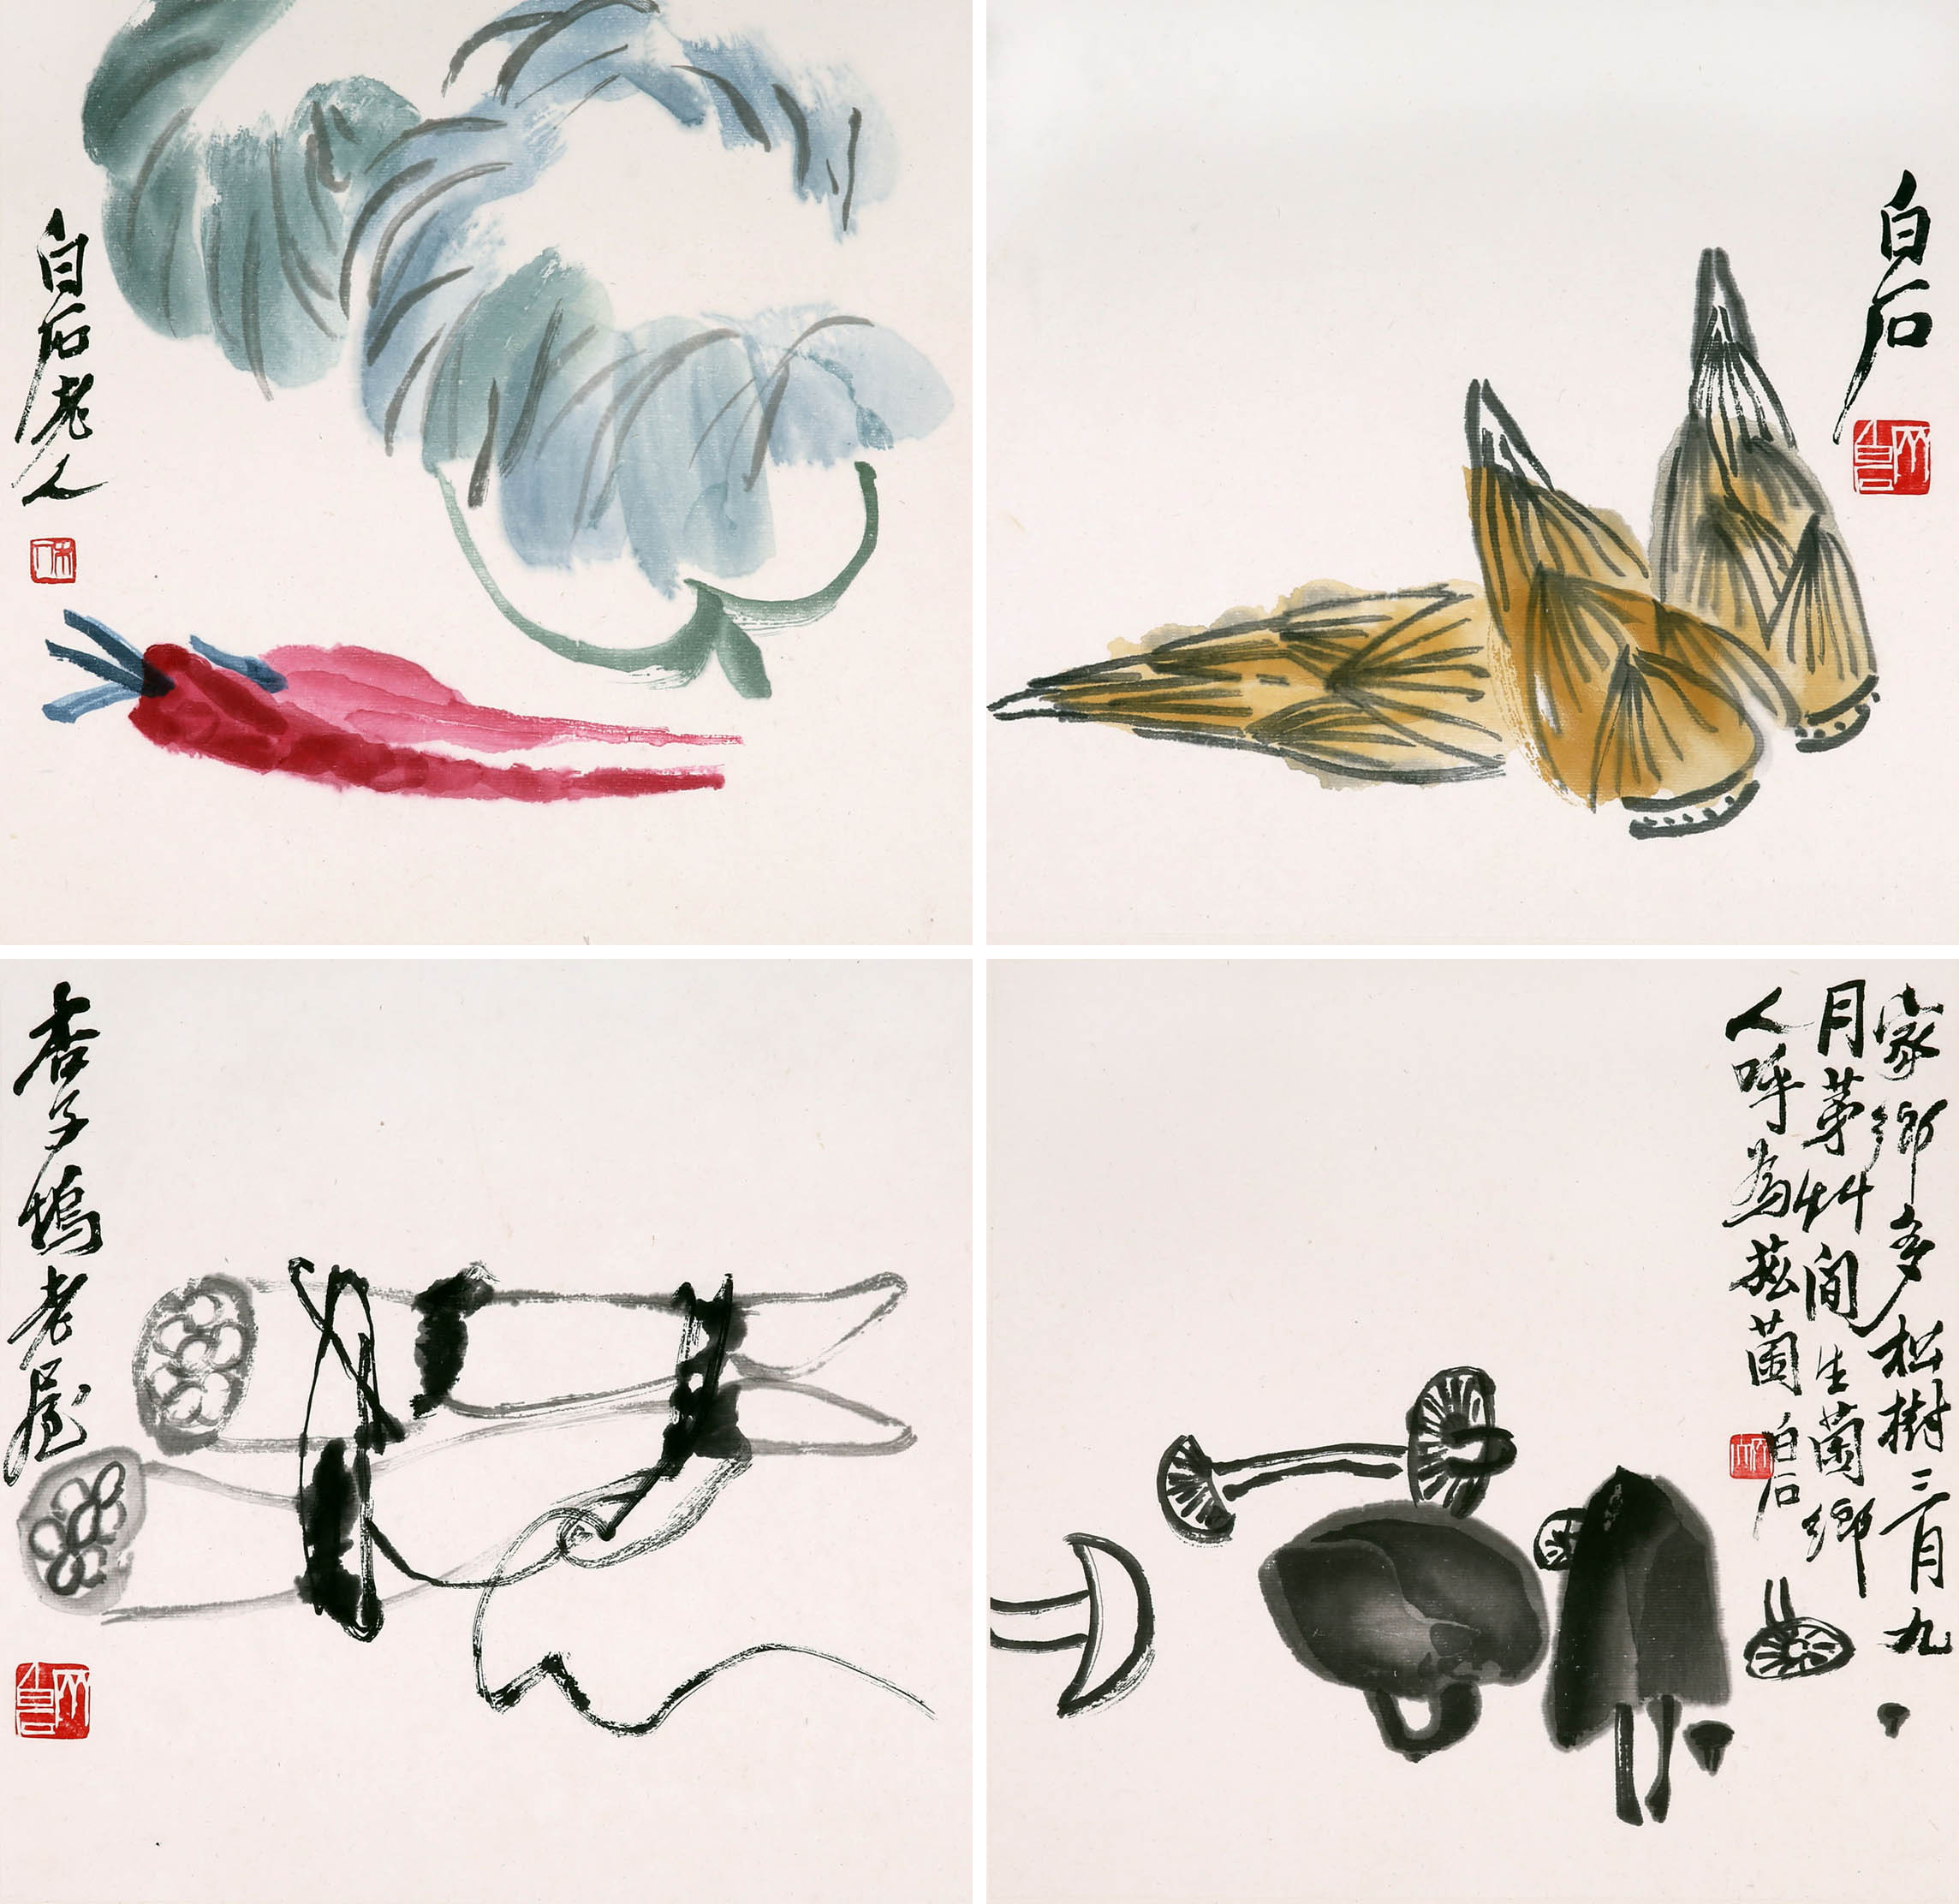 白石老人
白石
杏子塢老屋
家鄉多松樹三月九
月茅艸間生菌鄉
人呼為菌
白石